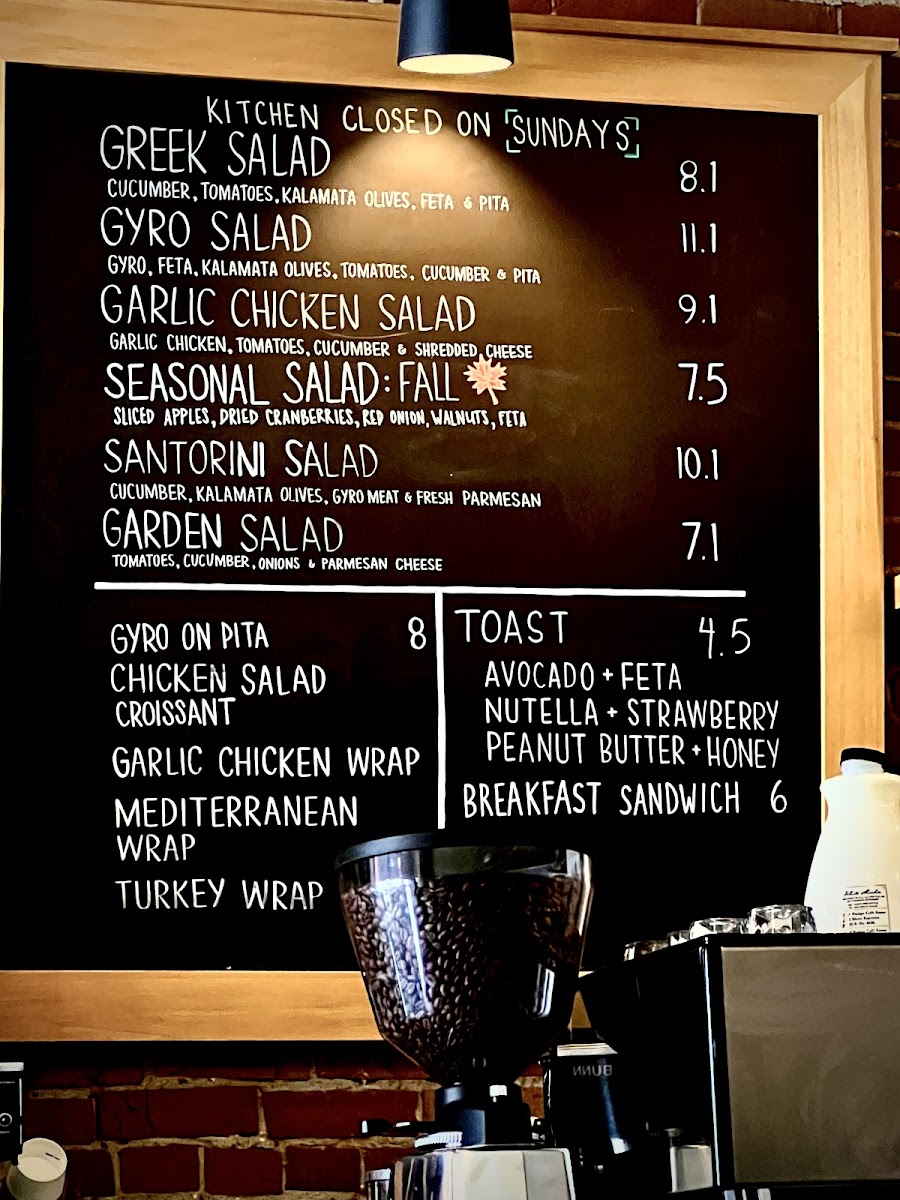 KITCHEN CLOSED ON [SUNDAYS]
GREEK SALAD 8.1
CUCUMBER, TOMATOES, KALAMATA OLIVES, FETA & PITA
GYRO SALAD 11.1
GYRO, FETA, KALAMATA OLIVES, TOMATOES, CUCUMBER & PITA
GARLIC CHICKEN SALAD 9.1
GARLIC CHICKEN, TOMATOES, CUCUMBER & SHREDDED CHEESE
SEASONAL SALAD: FALL 7.5
SLICED APPLES, DRIED CRANBERRIES, RED ONION, WALNUTS, FETA
SANTORINI SALAD 10.1
CUCUMBER, KALAMATA OLIVES, GYRO MEAT & FRESH PARMESAN
GARDEN SALAD 7.1
TOMATOES, CUCUMBER, ONIONS & PARMESAN CHEESE
GYRO ON PITA 8
CHICKEN SALAD
CROISSANT
GARLIC CHICKEN WRAP
MEDITERRANEAN
WRAP
TURKEY WRAP
TOAST 4.5
AVOCADO + FETA
NUTELLA + STRAWBERRY
PEANUT BUTTER + HONEY
BREAKFAST SANDWICH 6
White Mocha
BUNN